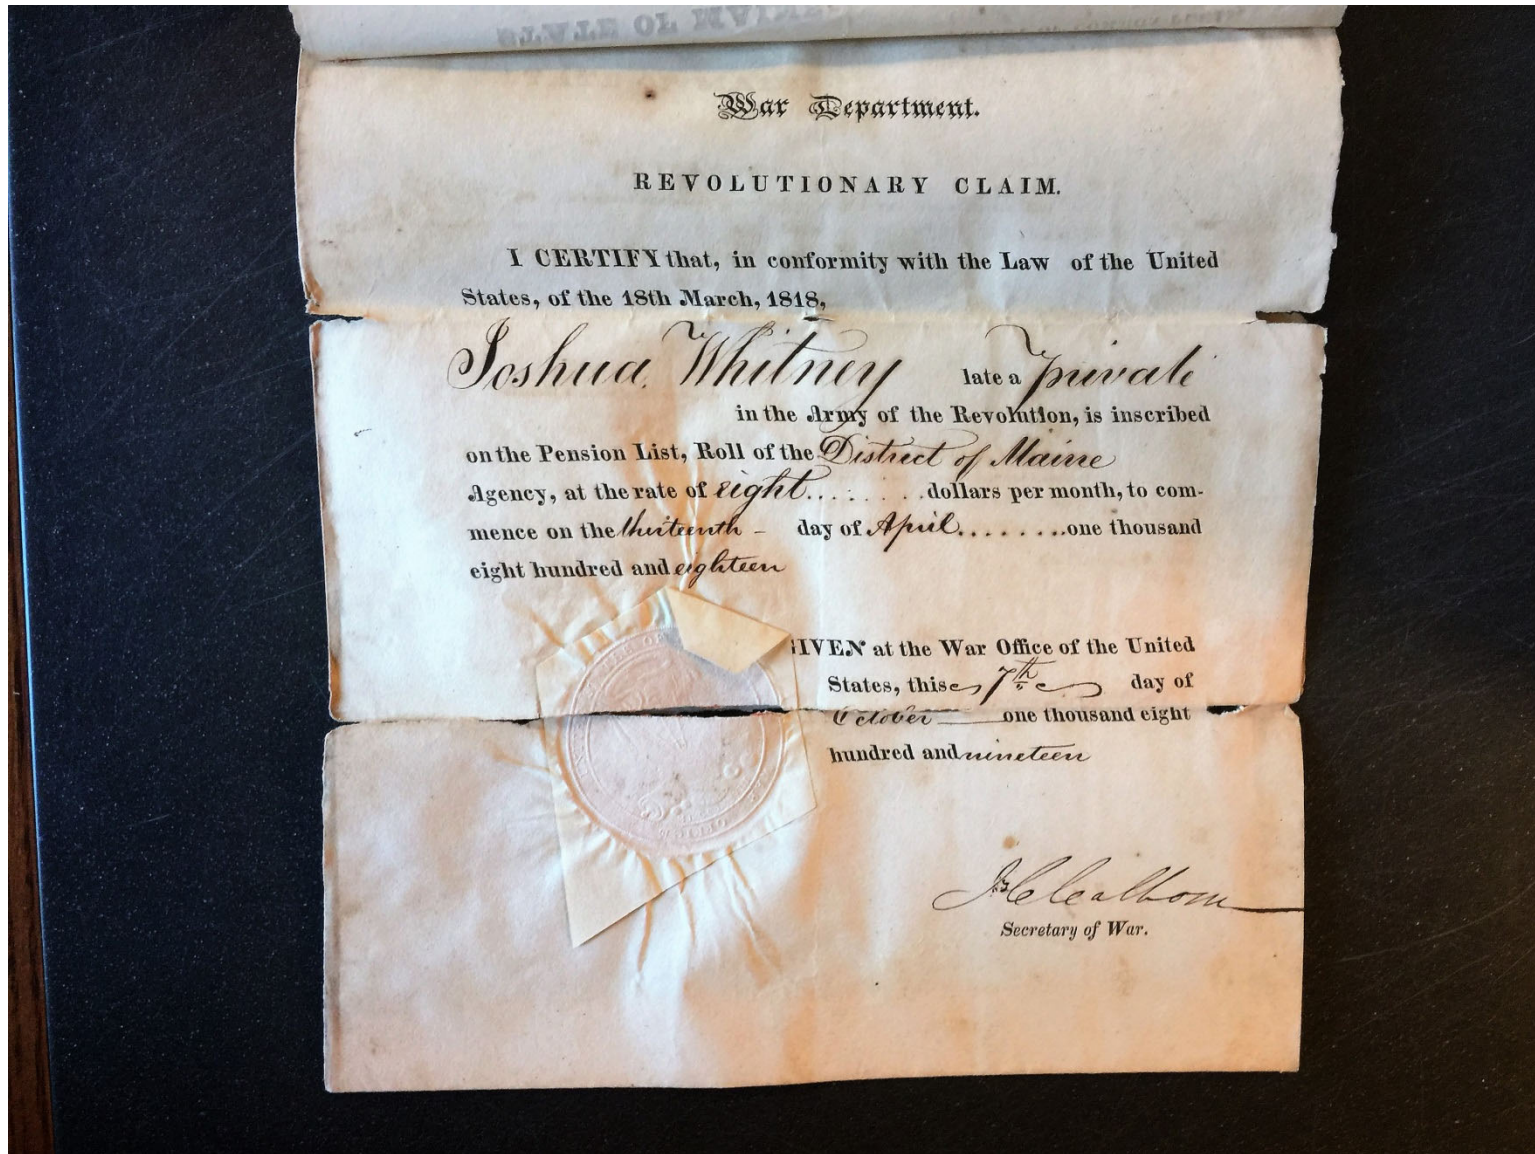 STATE OF
War Department.
REVOLUTIONARY CLAIM.
I CERTIFY that, in conformity with the Law of the United
States, of the 18th March, 1818,
Joshua Whitney late a private
in the Army of the Revolution, is inscribed
on the Pension List, Roll of the District of Maine
Agency, at the rate of eight........ dollars per month, to com-
mence on the thirteenth - day of April........one thousand
eight hundred and eighteen
GIVEN at the War Office of the United
States, this 7th day of
October one thousand eight
hundred and nineteen
WAR OFFICE
J C Calhoun
Secretary of War.